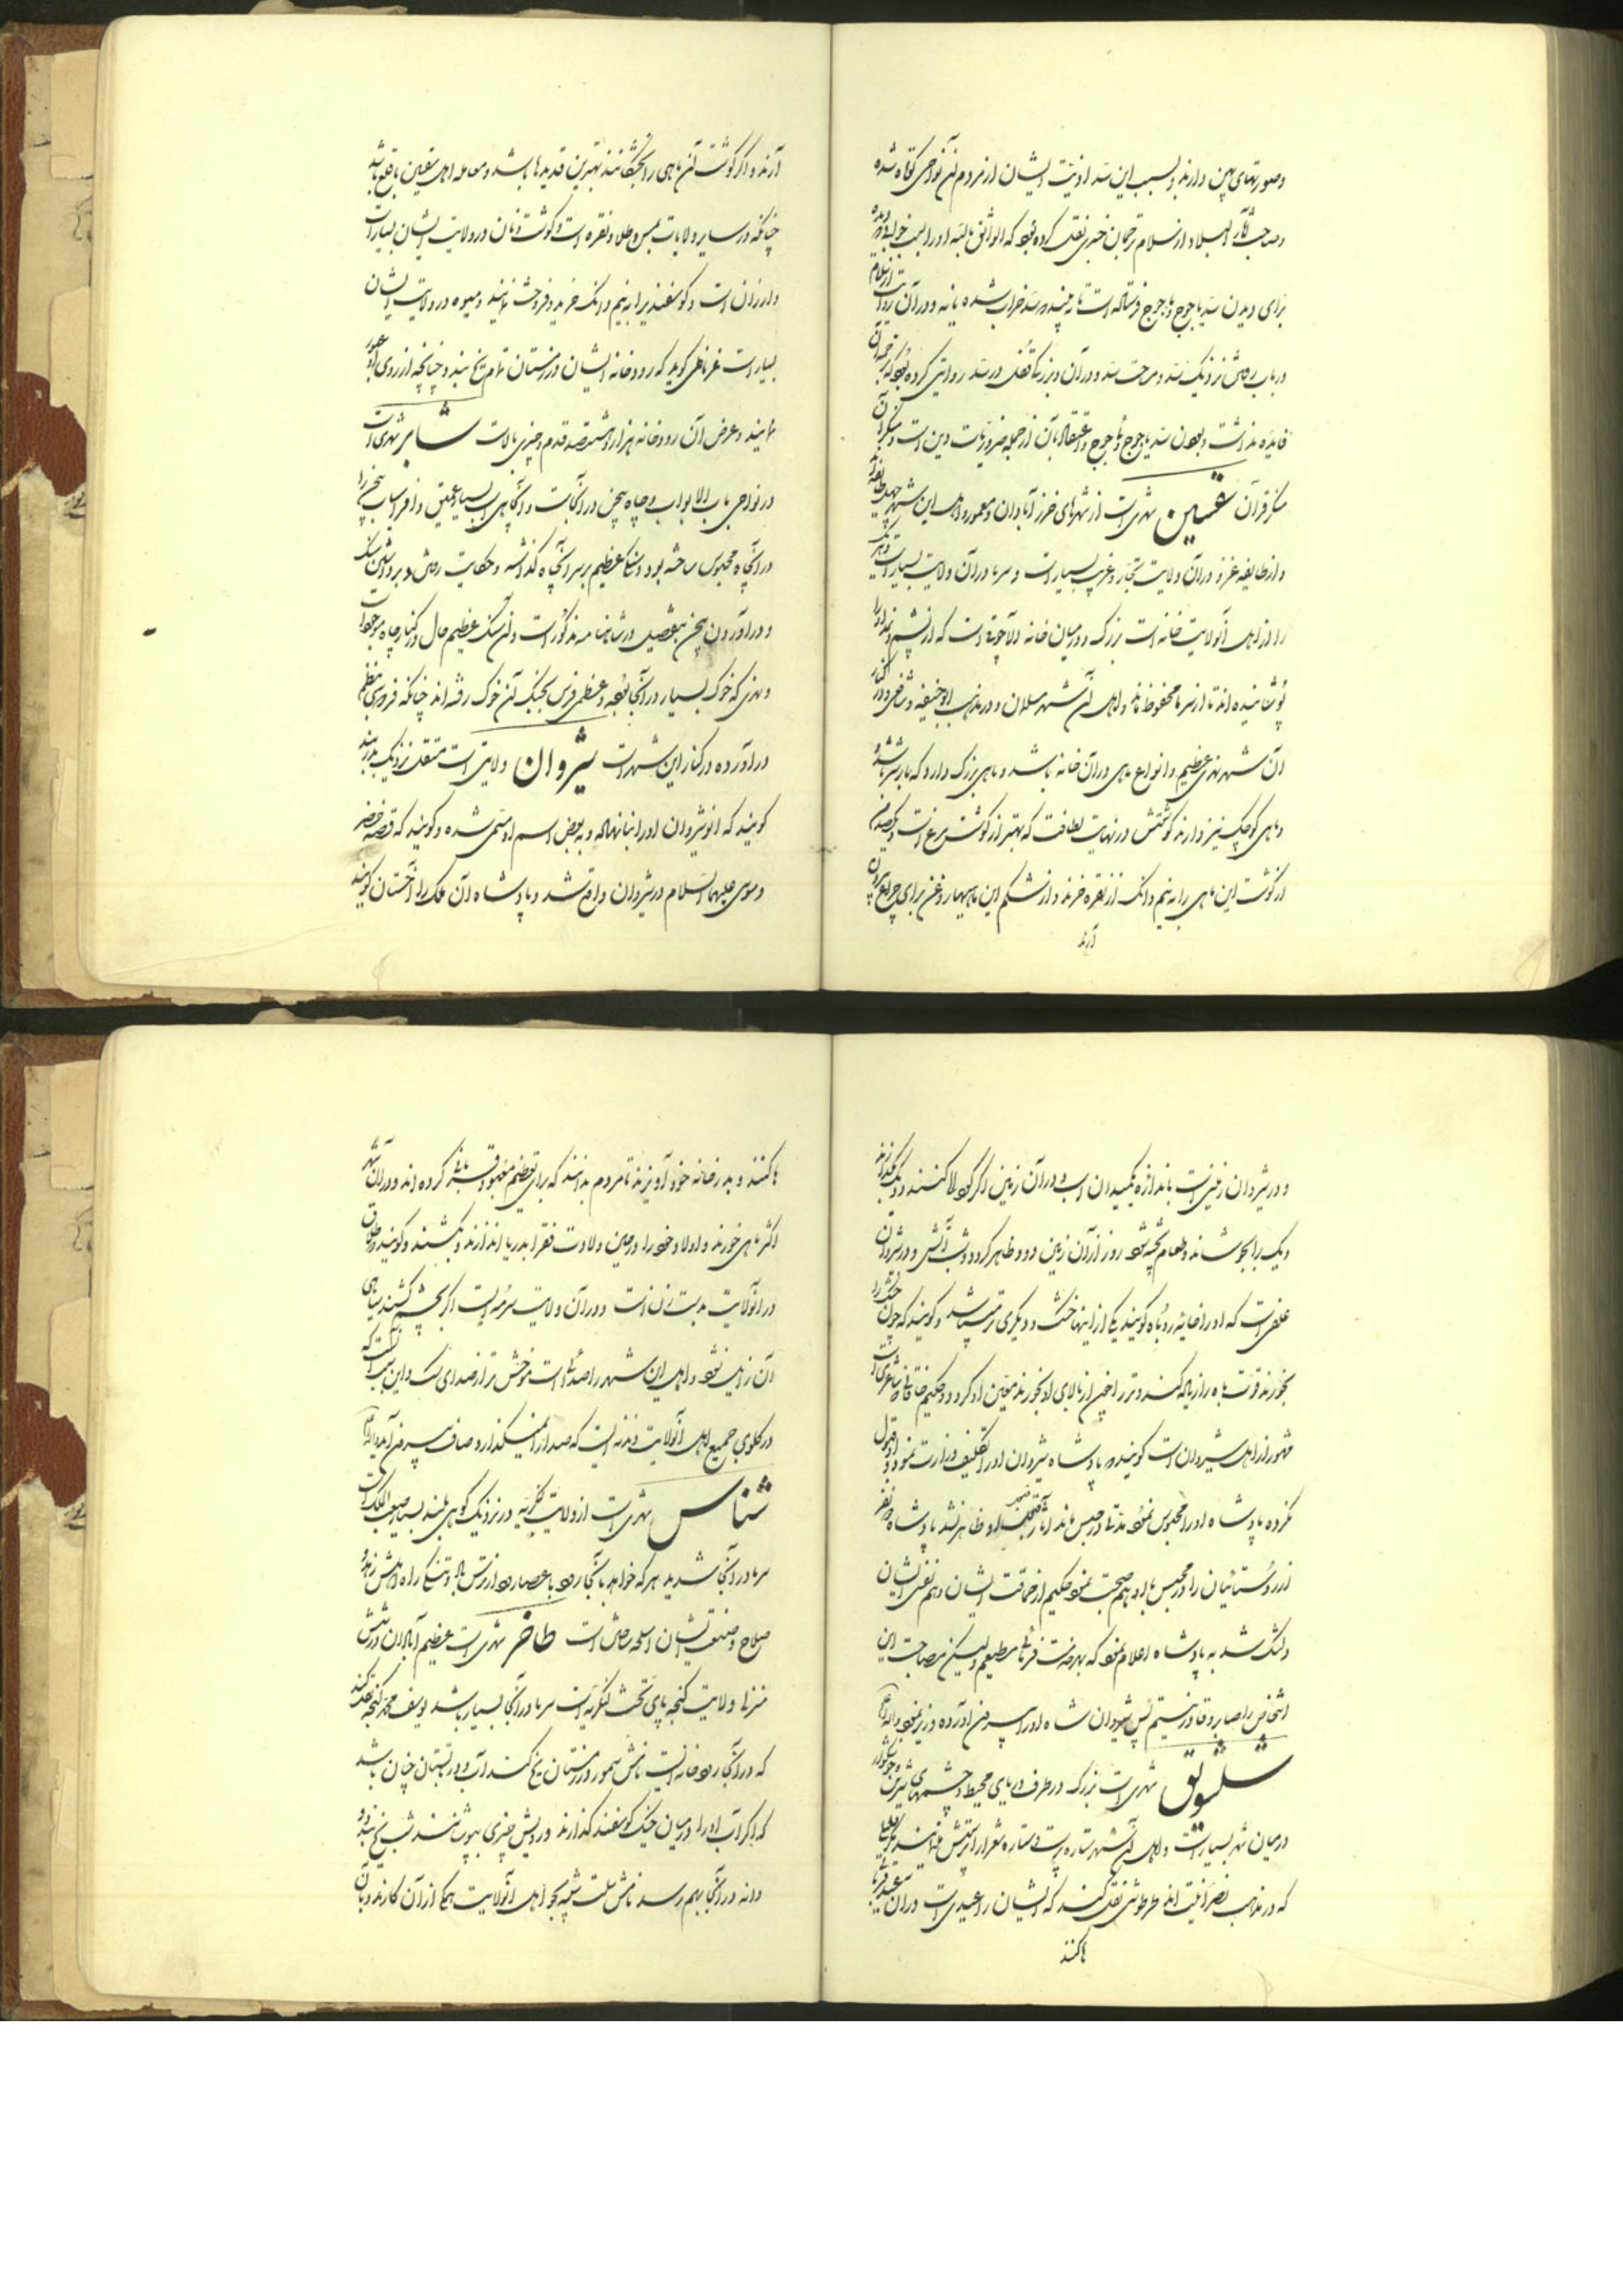 وصورتهای پهن دارند و بسبب این سد اذیت ایشان از مردم آن نواحی کوتاه شده
وصاحب آثار البلاد از سلام ترجمان خبری نقل کرده بود که الواثق بالله او را بسبب خوابی که دیده
برای دیدن سد یاجوج و ماجوج فرستاده است تا به بیند که سد خراب شده یا نه و در آن روایت از سلام
در باب روش نزدیک سد و مرمت سد و در آن و بزرگی قفل در سد روایتی کرده بود که ترجمه آن
فایده نداشت و بودن سد یاجوج و ماجوج و اعتقاد بآن از جمله ضروریات دین است و منکر آن
منکر قرآن سقسین شهریست از شهرهای خزر آبادان و معمور و اهل این شهر چهل طایفه‌اند
و از طایفه غز و در آن ولایت تجار و غریب بسیار است و سرما در آن ولایت بسیار است و هر یک
را از اهل آنولایت خانه است بزرگ و در میان خانه الاچوق است که از پشم و نمد او را
پوشانیده اند تا از سرما محفوظ ماند و اهل آن شهر مسلمان و در مذهب ابو حنیفه و شافعی و در کنار
آن شهر نهری عظیم و انواع ماهی در آن خانه باشد و ماهی بزرگ دارد که بار شتر باشد و
و ماهی کوچک نیز دارند گوشتش در نهایت لطافت که بهتر از گوشت مرغ است و یکصد من
از گوشت این ماهی را به نیم دانک از نقره خرند و از شکم این ماهیها روغن برای چراغ بیرون
آرند
آرند و اگر گوشت آن ماهی را خشک کنند بهترین قدیدها باشد و معامله اهل سقسین باقلع باشد
چنانکه در سایر ولایات بمس و طلا و نقره است و گوشت و نان در ولایت ایشان بسیار است
و ارزان است و گوسفندی را به نیم دانک خرید و فروخت نمایند و میوه در ولایت ایشان
بسیار است غرناطی گوید که رودخانه ایشان در زمستان تمام یخ بندد چنانچه از روی او عبور
نمایند و عرض آن رودخانه هزار و هشتصد قدم و چیزی بالاست شابر شهری است
در نواحی باب الابواب و چاه بیجن در آنجاست و آن چاهی است بسیار عمیق و افراسیاب بیجن را
در آنچاه محبوس ساخته بود و سنگ عظیم بر سر آنچاه گذاشته و حکایت رستم و برداشتن سنگ
و در آوردن بیجن بتفصیل در شاهنامه مذکور است و آن سنگ عظیم حال در کنار چاه موجود است
و بیژن که خوک بسیار در آنجا بوده و عظمای فرس بجنگ آن خوک رفته اند چنانکه فردوسی بنظم
در آورده در کنار این شهر است شیروان ولایتی است مستقل نزدیک بدربند
گویند که انوشیروان او را بنا نهاده و به بعض اسم او مسمی شده و گویند که قصه خضر
و موسی علیهما السلام در شیروان واقع شد و پادشاه آن ملک را اخستان گویند
و در شیروان زمینی است باندازه یکمیدان اسب و در آن زمین اگر گودالها کنند و دیک بگذارند
دیک را بجوشاند و طعام پخته شود روز از آن زمین دود ظاهر گردد و شب آتش و در شیروان
علفی است که او را خایه روباه گویند یکی از اینها خشک و دیگری تر میباشد و گویند که چون خشک را
بخورند قوت باه را زیاده کند و تر را چون از بالای او بخورند تسکین او کرد و حکیم خاقانی شاعری است
مشهور از اهل شیروان است گویند که پادشاه شیروان او را تکلیف وزارت نمود و او قبول
نکرده پادشاه او را محبوس نموده مدتی در حبس ماند آثار او ظاهر نشد پادشاه نفر
از روستائیان را در محبس با او بهم صحبت نموده حکیم از حماقت ایشان و هم نفسی ایشان
دلتنگ شد به پادشاه اعلام نمود که بهر خدمت فرمائی مطیعم ولیکن بمصاحبت این
اشخاص را صابر و قادر نیستم پس شیروان شاه او را بیرون آورده و وزیر نمود
شلشویق شهری است بزرگ در طرف دریای محیط و چشمهای شیرین و خوشگوار
در میان شهر بسیار است و اهل آن شهر ستاره پرست و ستاره شعرا را پرستش نمایند مگر قلیلی
که در مذهب نصرانیت اند طرطوشی نقل کند که ایشان را عیدی است در آن عید قربانی
ها کنند
ها کنند و بدر خانه خود آویزند تا مردم بدانند که برای تعظیم معبود قربانی کرده اند و در آن شهر
اکثر ماهی خورند و اولاد خود را در حین ولادت فقرا بدریا اندازند و بکشند و گویند که طلاق
در آنولایت بدست زن است و در آن ولایت سرمه ایست اگر بچشم کشند سیاهی
آن زایل نشود و اهل این شهر را صدائی است موحش تر از صدای سگ و این بسبب آنست که
در گلوی جمیع اهل آنولایت زنده ایست که صدا را نمیگذارد صاف بیرون آید
شناس شهری است از ولایت لکزیه در نزدیک کوهی بلند بسیار صعب المسلک است
سرما در آنجا شدید هر که خواهد بآنجا رود با عصا رود از ترس باد و تنگی راه و اهلش زره و
صلاح و صنعت ایشان اسلحه سازی است طاخر شهری است عظیم آبادان در شش
منزل ولایت گنجه پای تخت لکزیه است سرما در آنجا بسیار باشد یوسف محمد گنجه نقل کند
که در آنجا رودخانه ایست نامش سمور در زمستان یخ کند آب و در تابستان چنان باشد
که اگر آب او را در میان خیک گوسفند گذارند و رویش چیزی بپوشانند شب یخ بندد و
دانه در آنجا بهم رسد نامش سلت شبیه بجو اهل آنولایت همگی از آن کارند و بآن